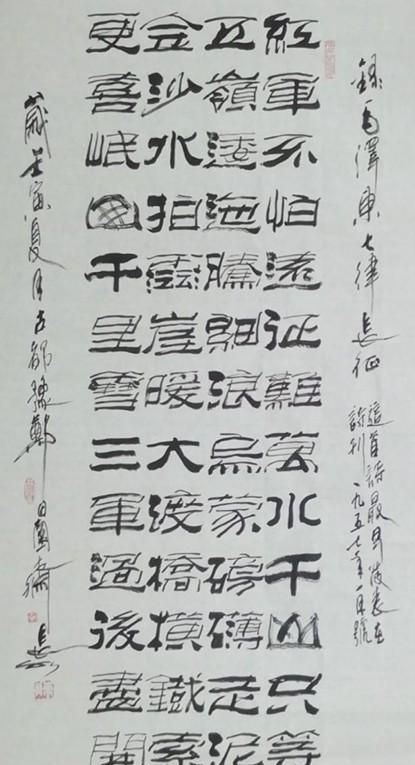 錄毛澤東七律長征
這首詩最早發表在
詩刊一九五七年一月號
紅軍不怕遠征難萬水千山只等
五嶺逶迤騰細浪烏蒙磅礴走泥
金沙水拍雲崖暖大渡橋橫鐵索
更喜岷山千里雪三軍過後盡開
歲壬寅夏月古都豫鄭